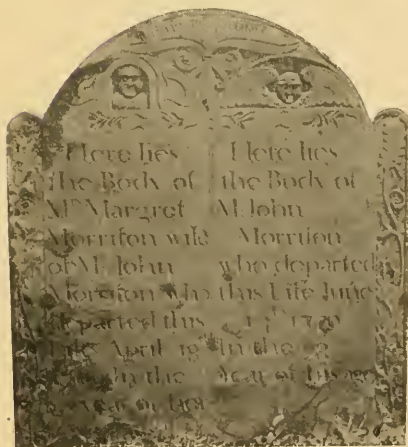 Here lies
the Body of
Mrs Margret
Morrison wife
of Mr John
Morrison who
departed this
Life April 19th
in the
year of her
Here lies
the Body of
Mr John
Morrison
who departed
this Life June
In the
Year of his age